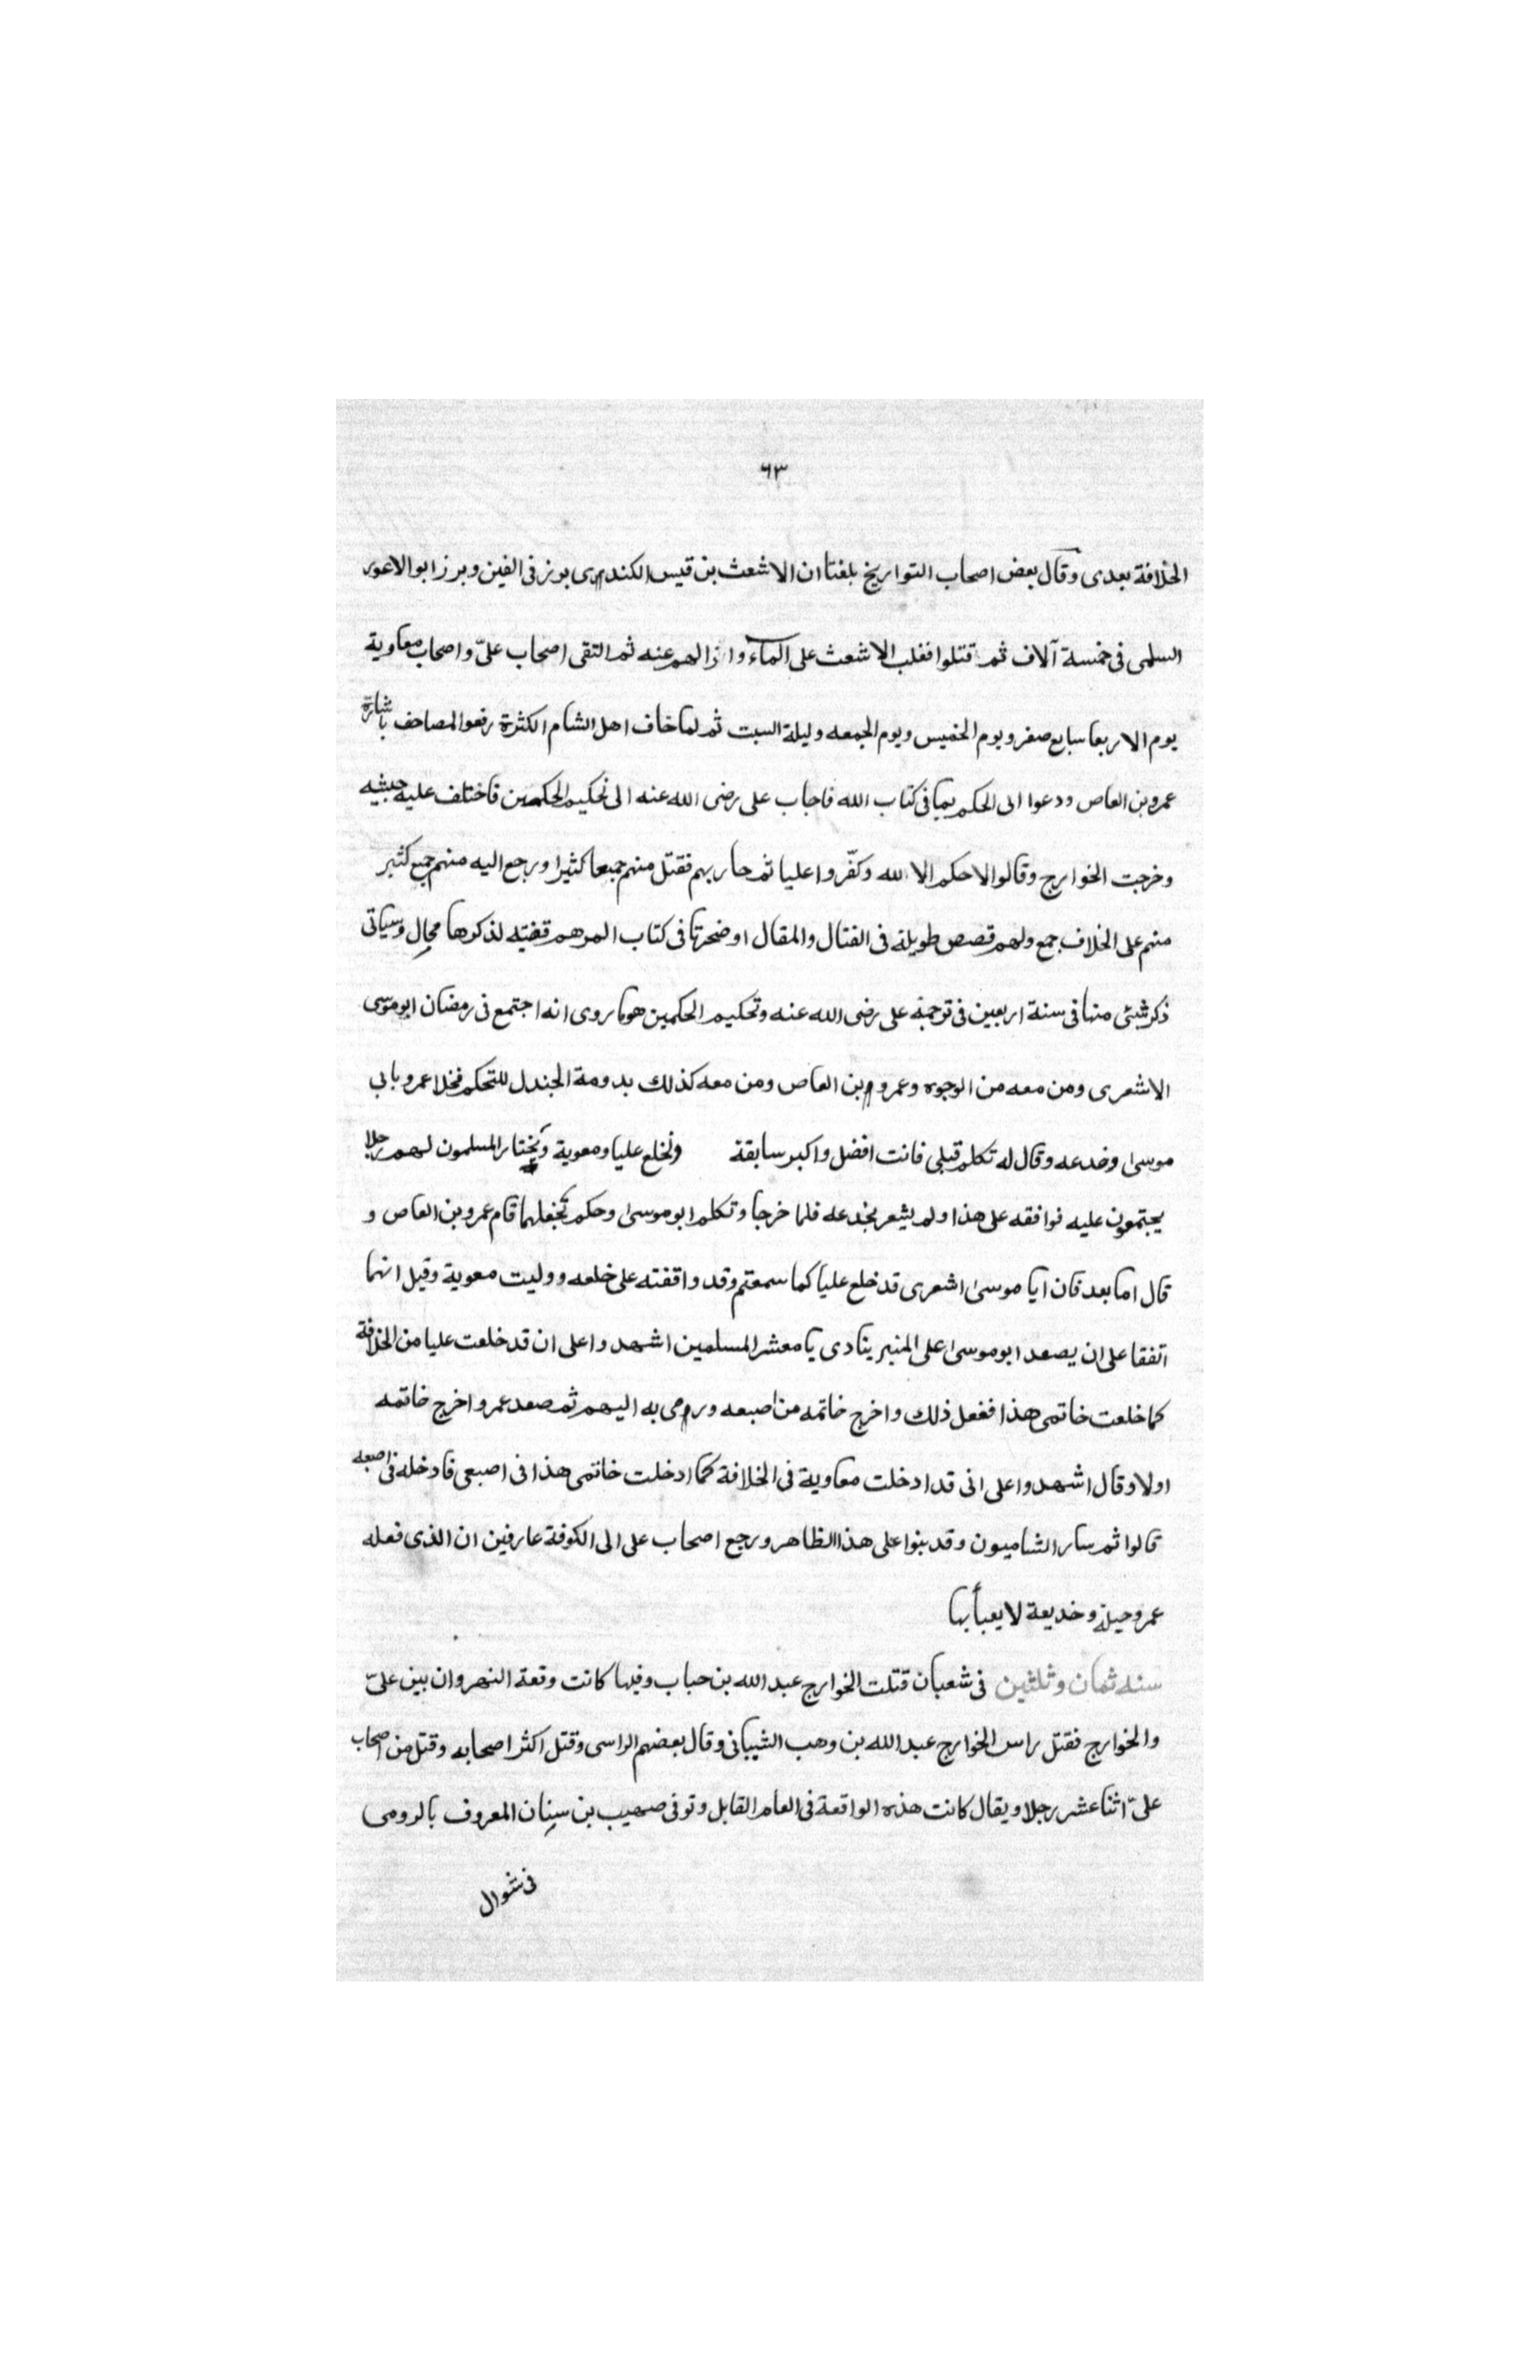 ٦٣
الخلافة بعدى وقال بعض اصحاب التواريخ بلغنا ان الاشعث بن قيس الكندى برز فى الفين وبرز ابو الاعور
السلمى فى خمسة آلاف ثم قتلوا فغلب الاشعث على الماء وازالهم عنه ثم التقى اصحاب علىّ واصحاب معاوية
يوم الاربعا سابع صفر ويوم الخميس ويوم الجمعه وليلة السبت ثم لما خاف اهل الشام الكثرة رفعوا المصاحف باشارة
عمرو بن العاص ودعوا الى الحكم بما فى كتاب الله فاجاب على رضى الله عنه الى تحكيم الحكمين فاختلف عليه جيشه
وخرجت الخوارج وقالوا لا حكم الا لله وكفّروا عليا ثم حاربهم فقتل منهم جمعا كثيرا ورجع اليه منهم جمع كثير
منهم على الخلاف جمع ولهم قصص طويلة فى القتال والمقال اوضحتها فى كتاب المرهم لذكرها مجال وسياتى
ذكر شئى منها فى سنة اربعين فى ترجمة على رضى الله عنه وتحكيم الحكمين هو ما روى انه اجتمع فى رمضان ابو موسى
الاشعرى ومن معه من الوجوه وعمرو بن العاص ومن معه كذلك بدومة الجندل للتحكم فخلا عمرو بابى
موسى وخدعه وقال له تكلم قبلى فانت افضل واكبر سابقة ونخلع عليا ومعوية ويختار المسلمون لهم رجلا
يجتمعون عليه فوافقه على هذا ولم يشعر بخدعه فلما خرجا وتكلم ابو موسى وحكم بخلعهما قام عمرو بن العاص و
قال اما بعد فان ابا موسى اشعرى قد خلع عليا كما سمعتم وقد وافقته على خلعه ووليت معوية وقيل انهما
اتفقا على ان يصعد ابو موسى على المنبر ينادى يا معشر المسلمين اشهدوا على ان قد خلعت عليا من الخلافة
كما خلعت خاتمى هذا ففعل ذلك واخرج خاتمه من اصبعه ورمى به اليهم ثم صعد عمرو اخرج خاتمه
اولا وقال اشهدوا على انى قد ادخلت معاوية فى الخلافة كما ادخلت خاتمى هذا فى اصبعى فادخله فى اصبعه
قالوا ثم سار الشاميون وقد بنوا على هذا الظاهر ورجع اصحاب على الى الكوفة عارفين ان الذى فعله
عمرو حيلة وخديعة لا يعبأ بها
سنه ثمان وثلثين فى شعبان قتلت الخوارج عبد الله بن حباب وفيها كانت وقعة النهروان بين علىّ
والخوارج فقتل راس الخوارج عبد الله بن وهب الشيبانى وقال بعضهم الراسى وقتل اكثر اصحابه وقتل من اصحاب
علىّ اثنا عشر رجلا ويقال كانت هذه الواقعة فى العام القابل وتوفى صهيب بن سنان المعروف بالرومى
فى شوال